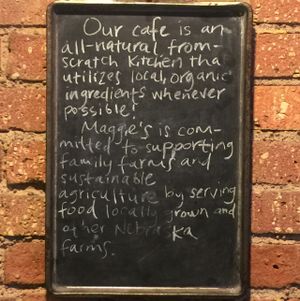 Our cafe is an
all-natural from-
scratch kitchen tha
utilizes local, organic
ingredients whenever
possible!
Maggie's is com-
mitted to supporting
family farms and
sustainable
agriculture by serving
food locally grown and
other Nebraska
farms.